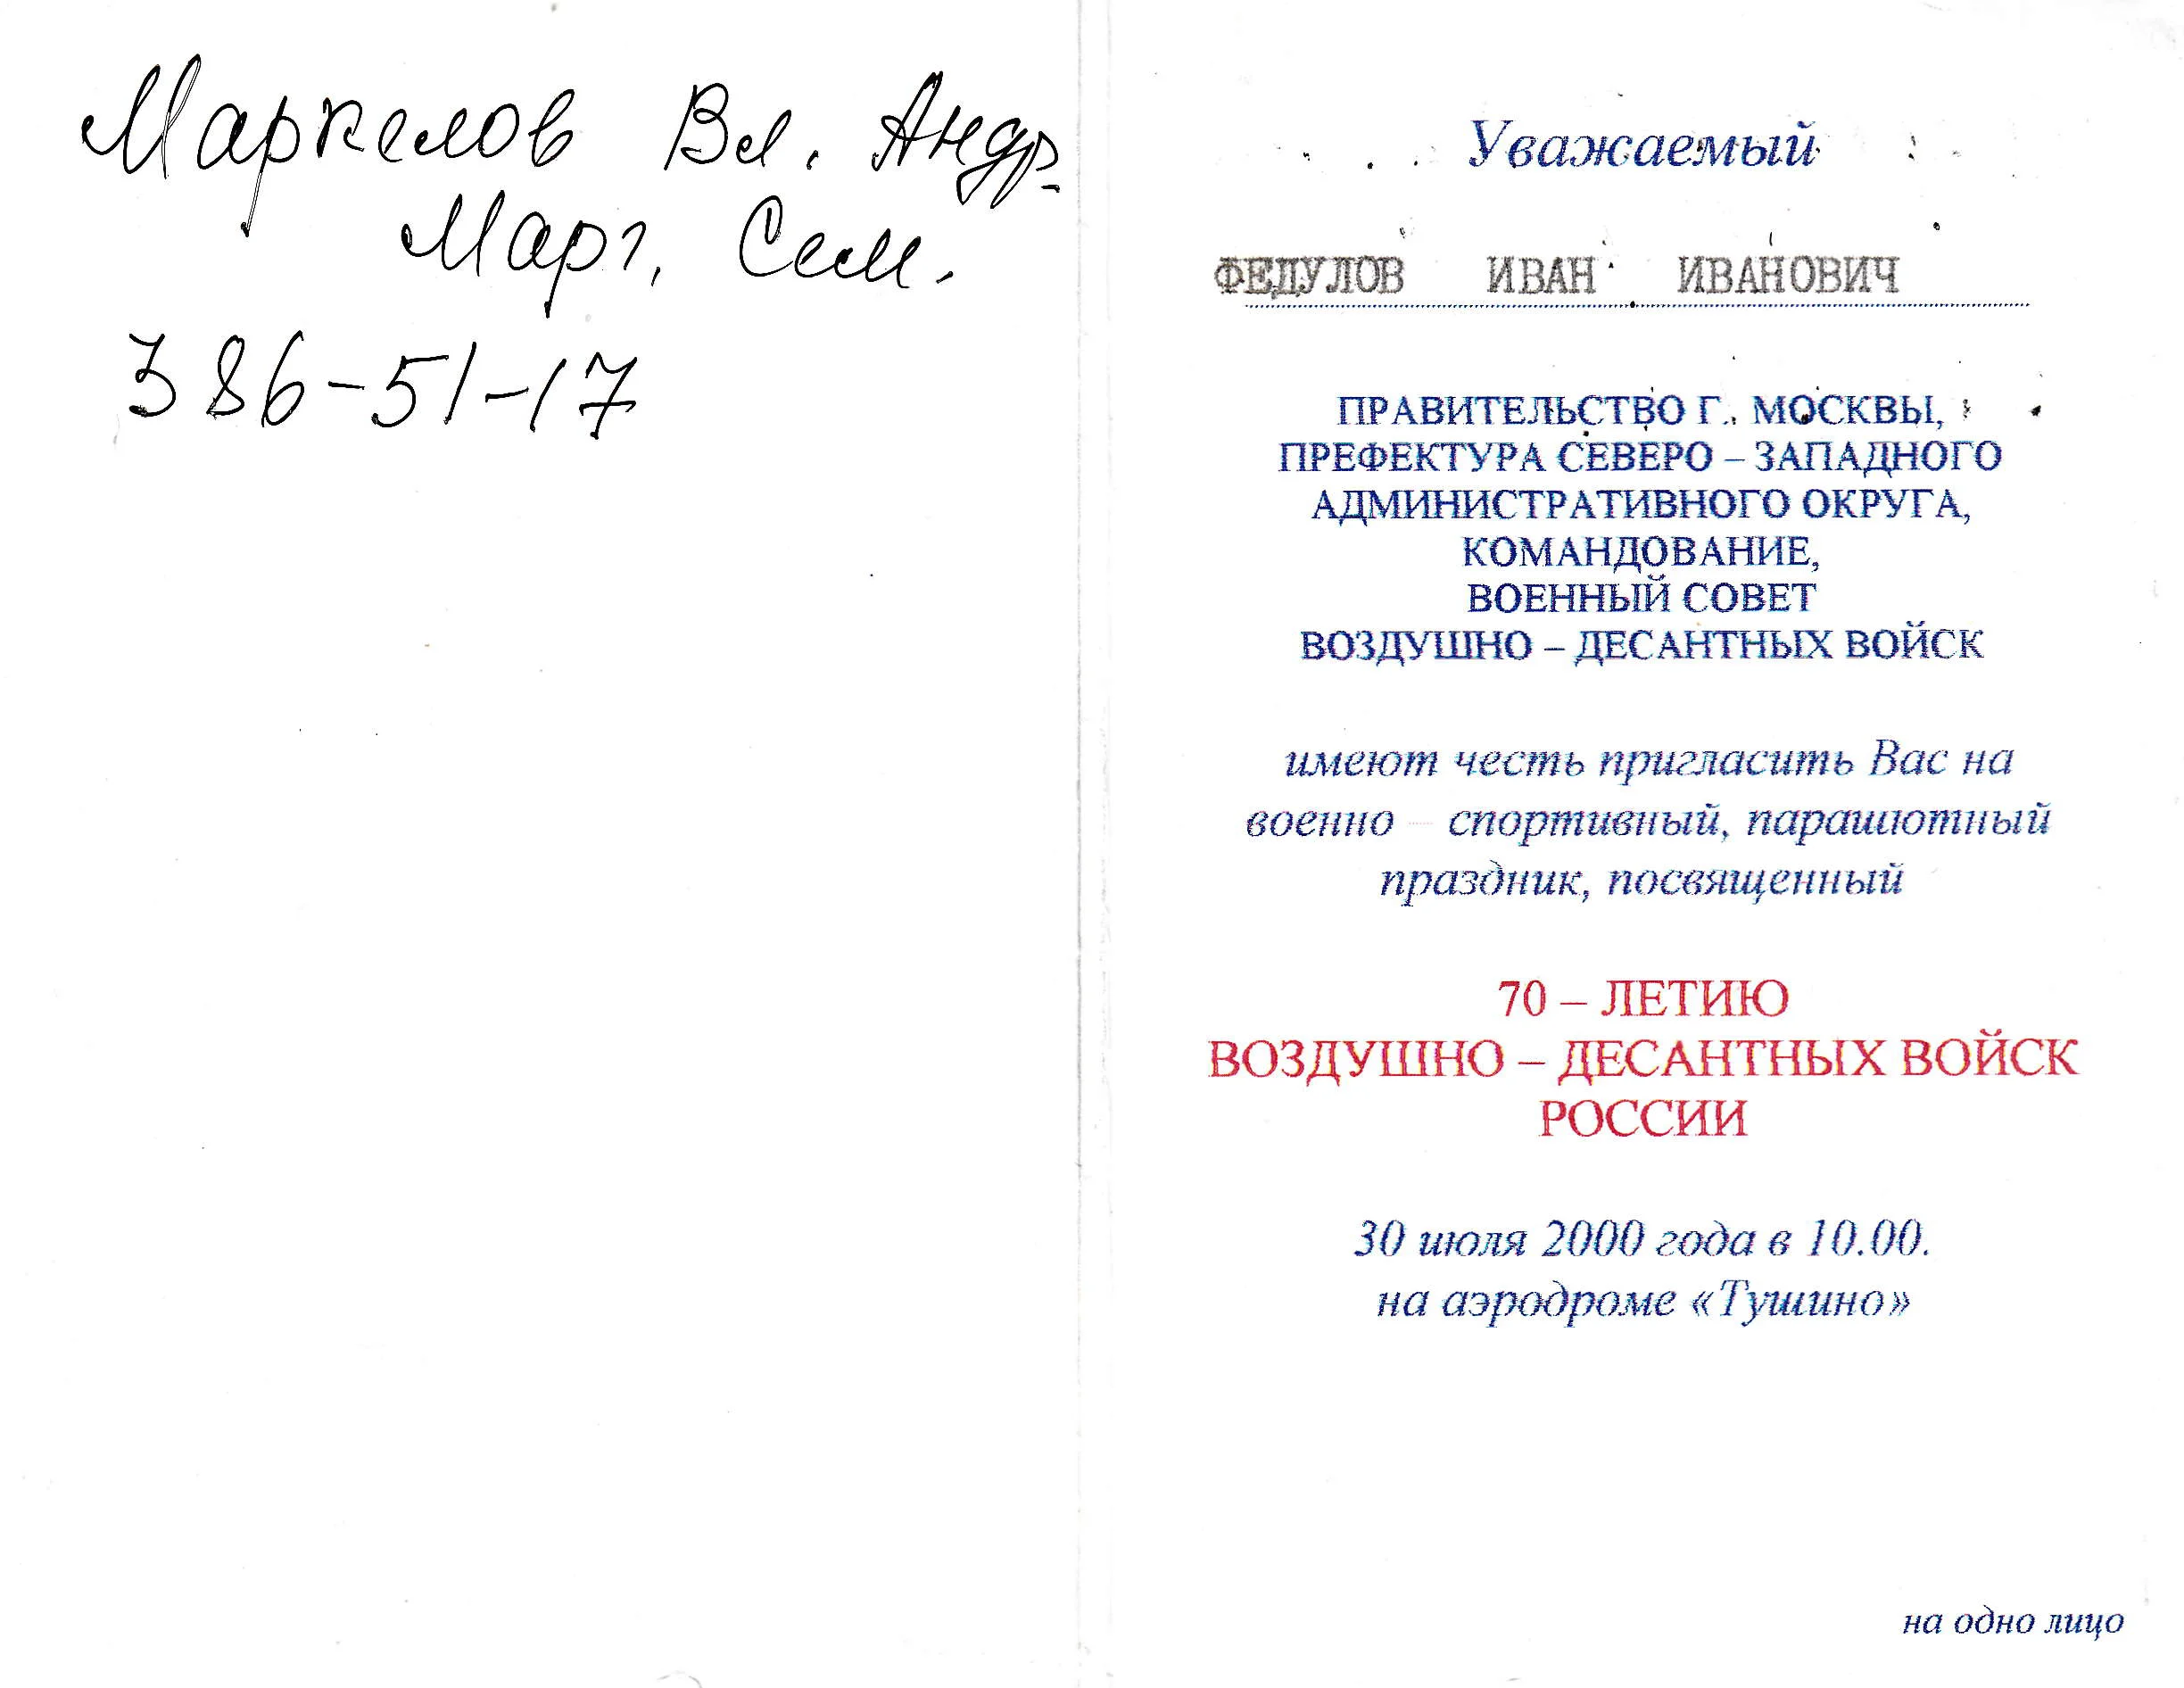 Маркелов Вл. Андр.
Марг. Сем.
386-51-17
Уважаемый
ФЕДУЛОВ ИВАН ИВАНОВИЧ
ПРАВИТЕЛЬСТВО Г. МОСКВЫ,
ПРЕФЕКТУРА СЕВЕРО – ЗАПАДНОГО
АДМИНИСТРАТИВНОГО ОКРУГА,
КОМАНДОВАНИЕ,
ВОЕННЫЙ СОВЕТ
ВОЗДУШНО – ДЕСАНТНЫХ ВОЙСК
имеют честь пригласить Вас на
военно – спортивный, парашютный
праздник, посвященный
70 – ЛЕТИЮ
ВОЗДУШНО – ДЕСАНТНЫХ ВОЙСК
РОССИИ
30 июля 2000 года в 10.00.
на аэродроме «Тушино»
на одно лицо